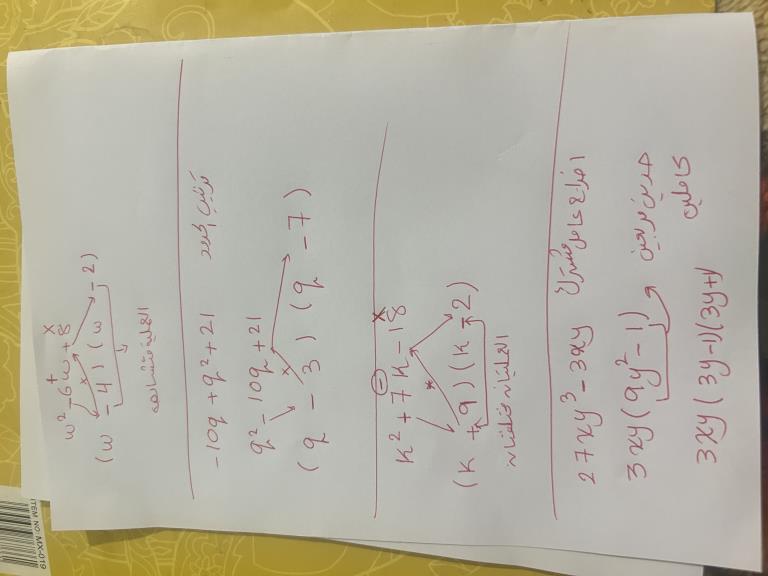 w² - 6w + 8
+ x
(w - 4)(w - 2)
العملية متشابهة
-10q + q² + 21 ترتيب الحدود
q² - 10q + 21
(q - 3)(q - 7)
k² + 7k - 18
- x
(k + 9)(k - 2)
العمليتان مختلفتان
27xy³ - 3xy اخراج عامل مشترك
3xy(9y² - 1) حدين مربعين
كاملين
3xy(3y-1)(3y+1)
ITEM NO. MX-019